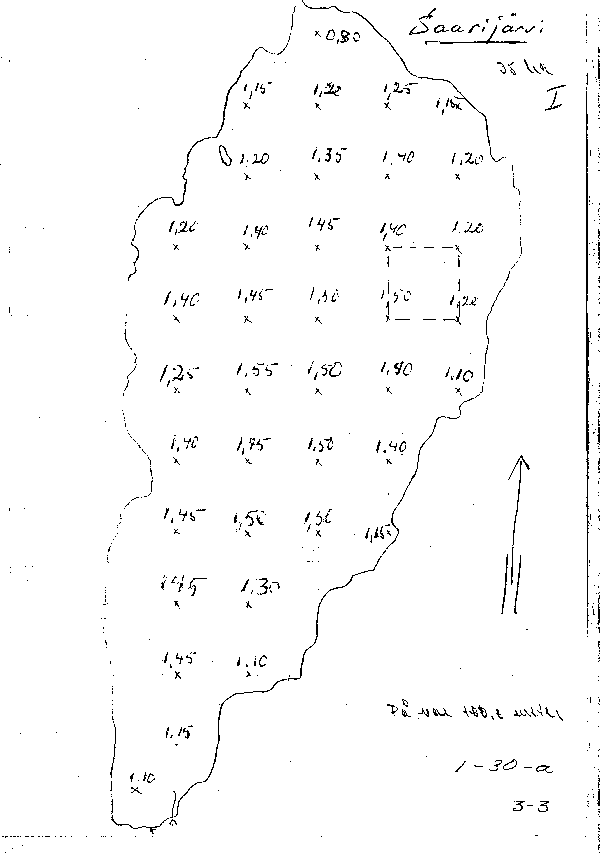 Saarijärvi
0,80
35 ha
I
1,15 1,20 1,25 1,15
1,20 1,35 1,40 1,20
1,20 1,40 1,45 1,40 1,20
1,40 1,45 1,50 1,50 1,20
1,25 1,55 1,50 1,40 1,10
1,40 1,75 1,50 1,40
1,45 1,50 1,50 1,25
1,45 1,30
1,45 1,10
1,15
1,10
1-30-a
3-3